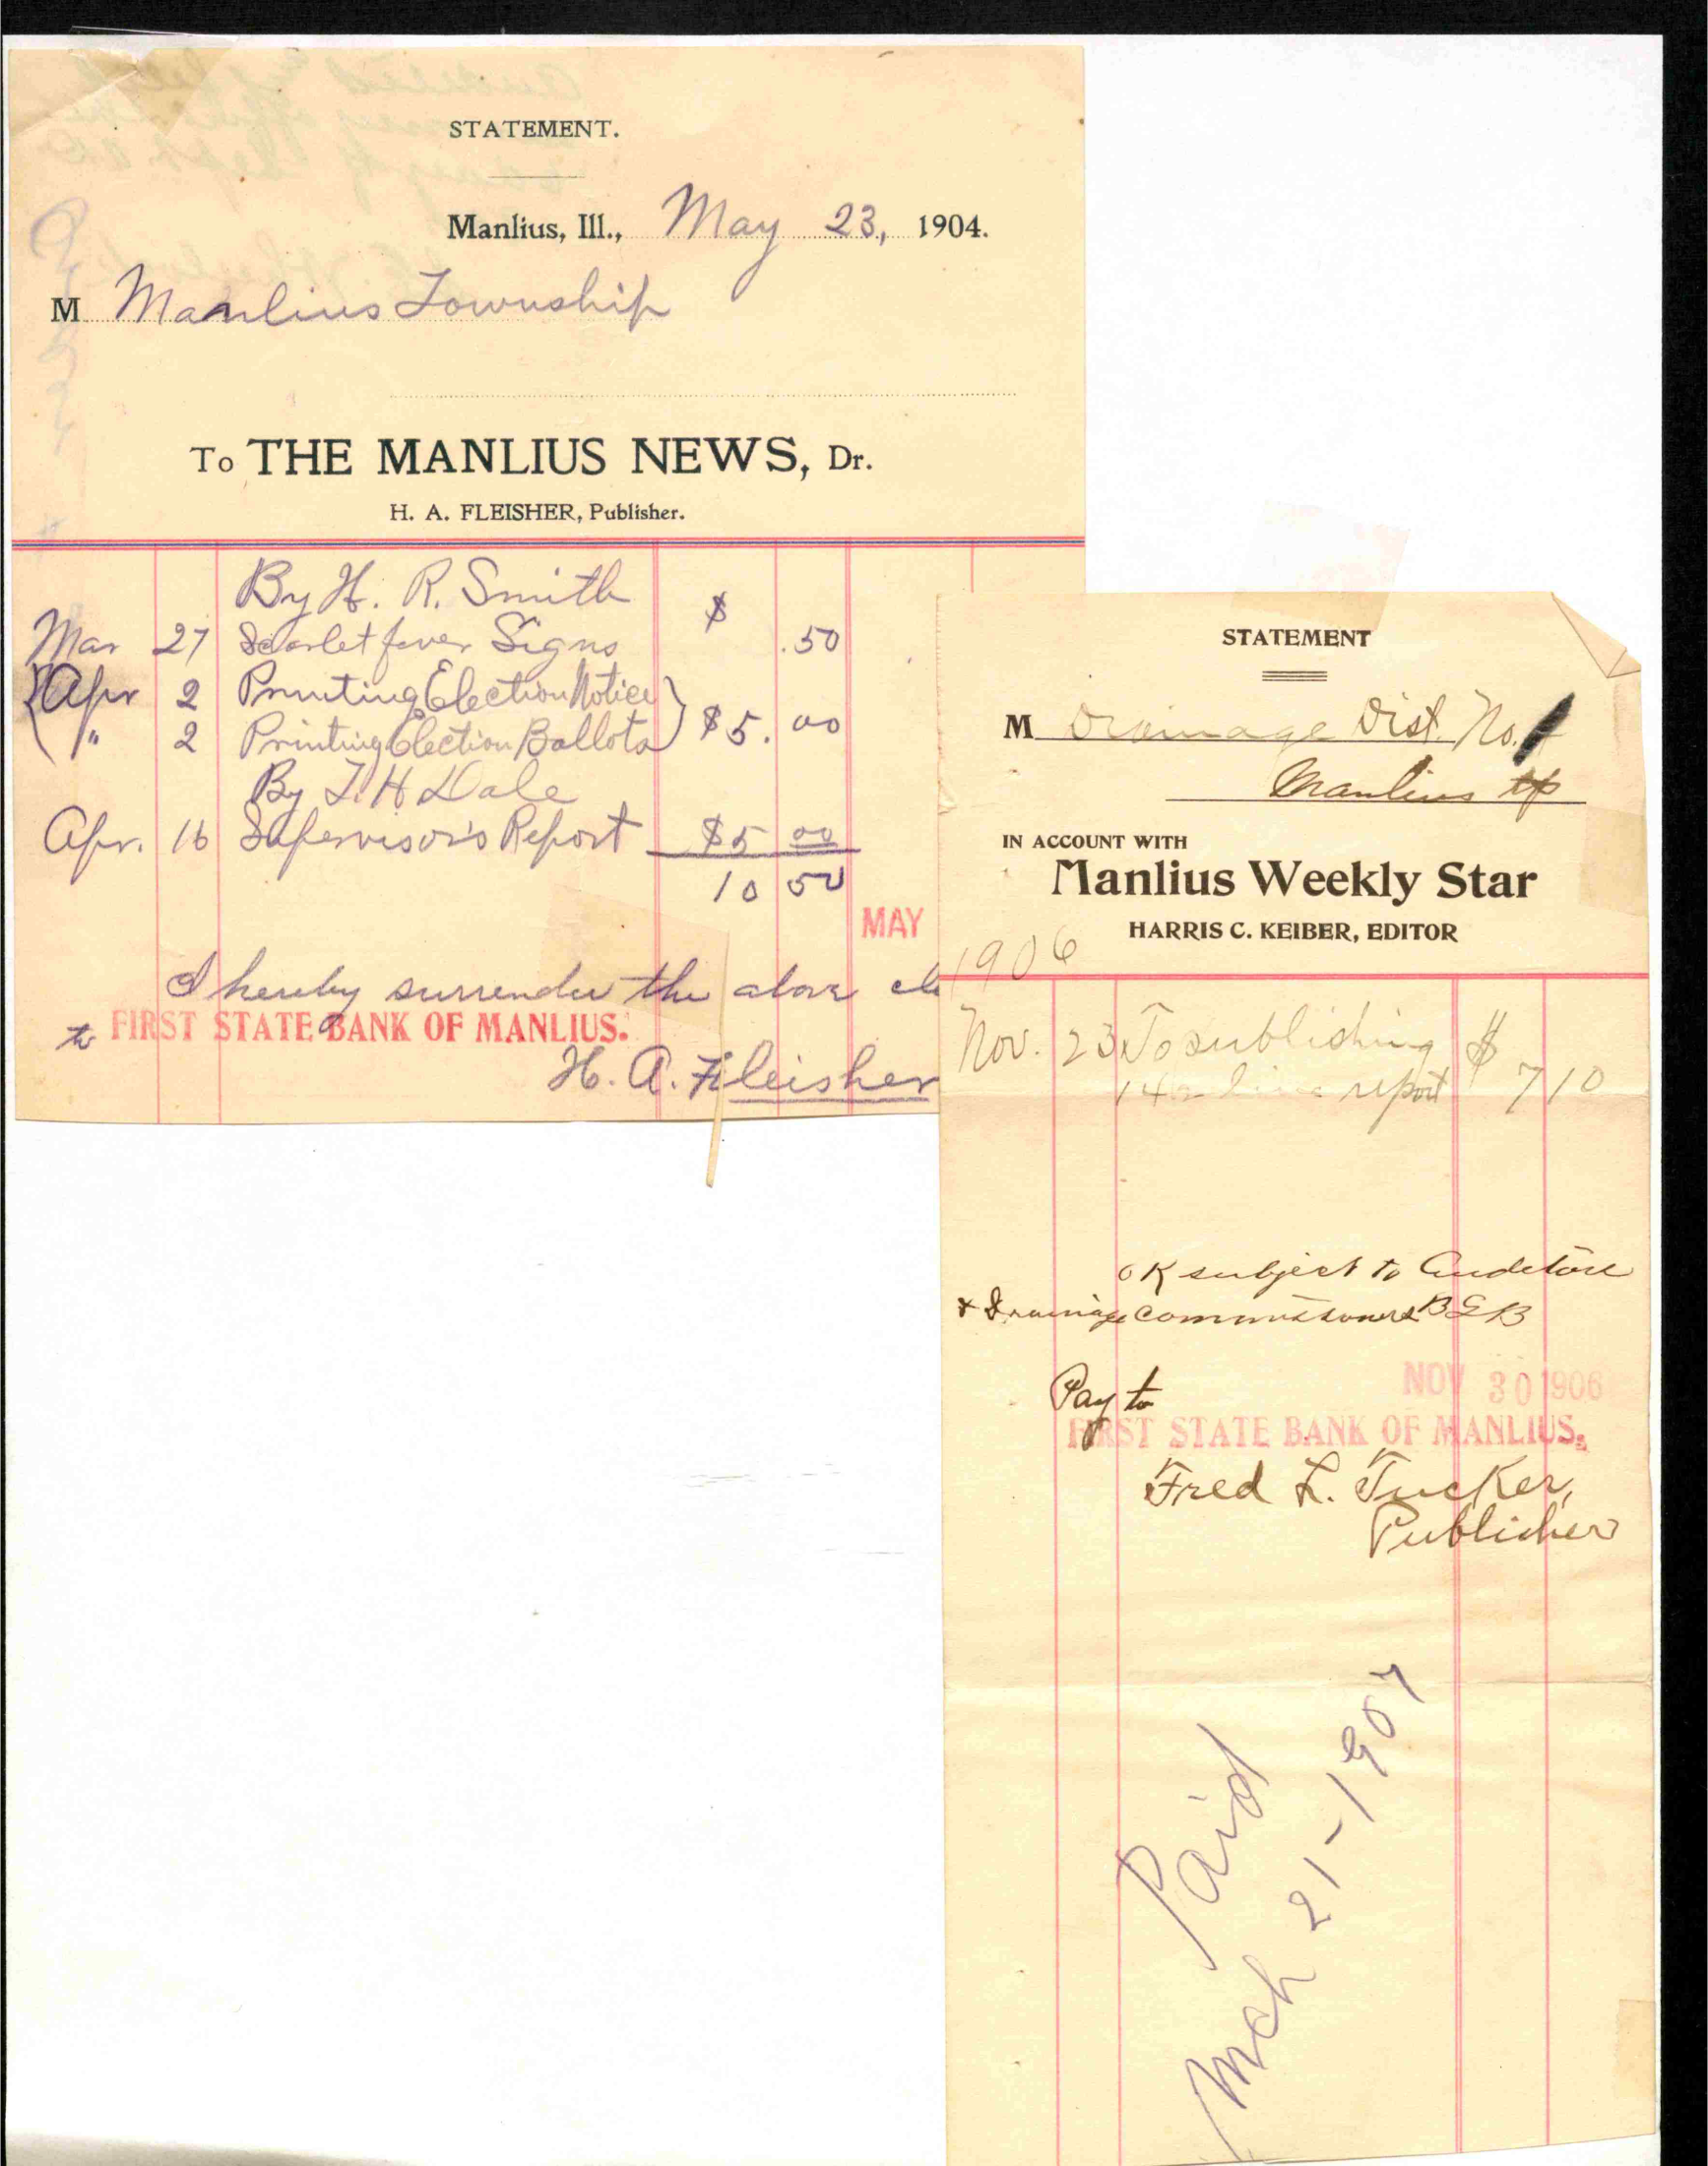 STATEMENT.
Manlius, Ill., May 23, 1904.
M Manlius Township
To THE MANLIUS NEWS, Dr.
H. A. FLEISHER, Publisher.
By H. R. Smith
Mar 27 Scarlet fever Signs $ .50
Apr 2 Printing Election Notice
" 2 Printing Election Ballots $5.00
By T. H Dale
Apr. 16 Supervisor's Report $5 00
10 50
MAY
I hereby surrender the above
to FIRST STATE BANK OF MANLIUS.
H. A. Fleisher
STATEMENT
M Drainage Dist. No. 1
Manlius tp
IN ACCOUNT WITH
Manlius Weekly Star
HARRIS C. KEIBER, EDITOR
1906
Nov. 23 To publishing $
line report 7 10
OK subject to Auditors
& Drainage Commissioners
Pay to
NOV 30 1906
FIRST STATE BANK OF MANLIUS.
Fred L. Tucker,
Publisher
Paid
Mch 21-1907